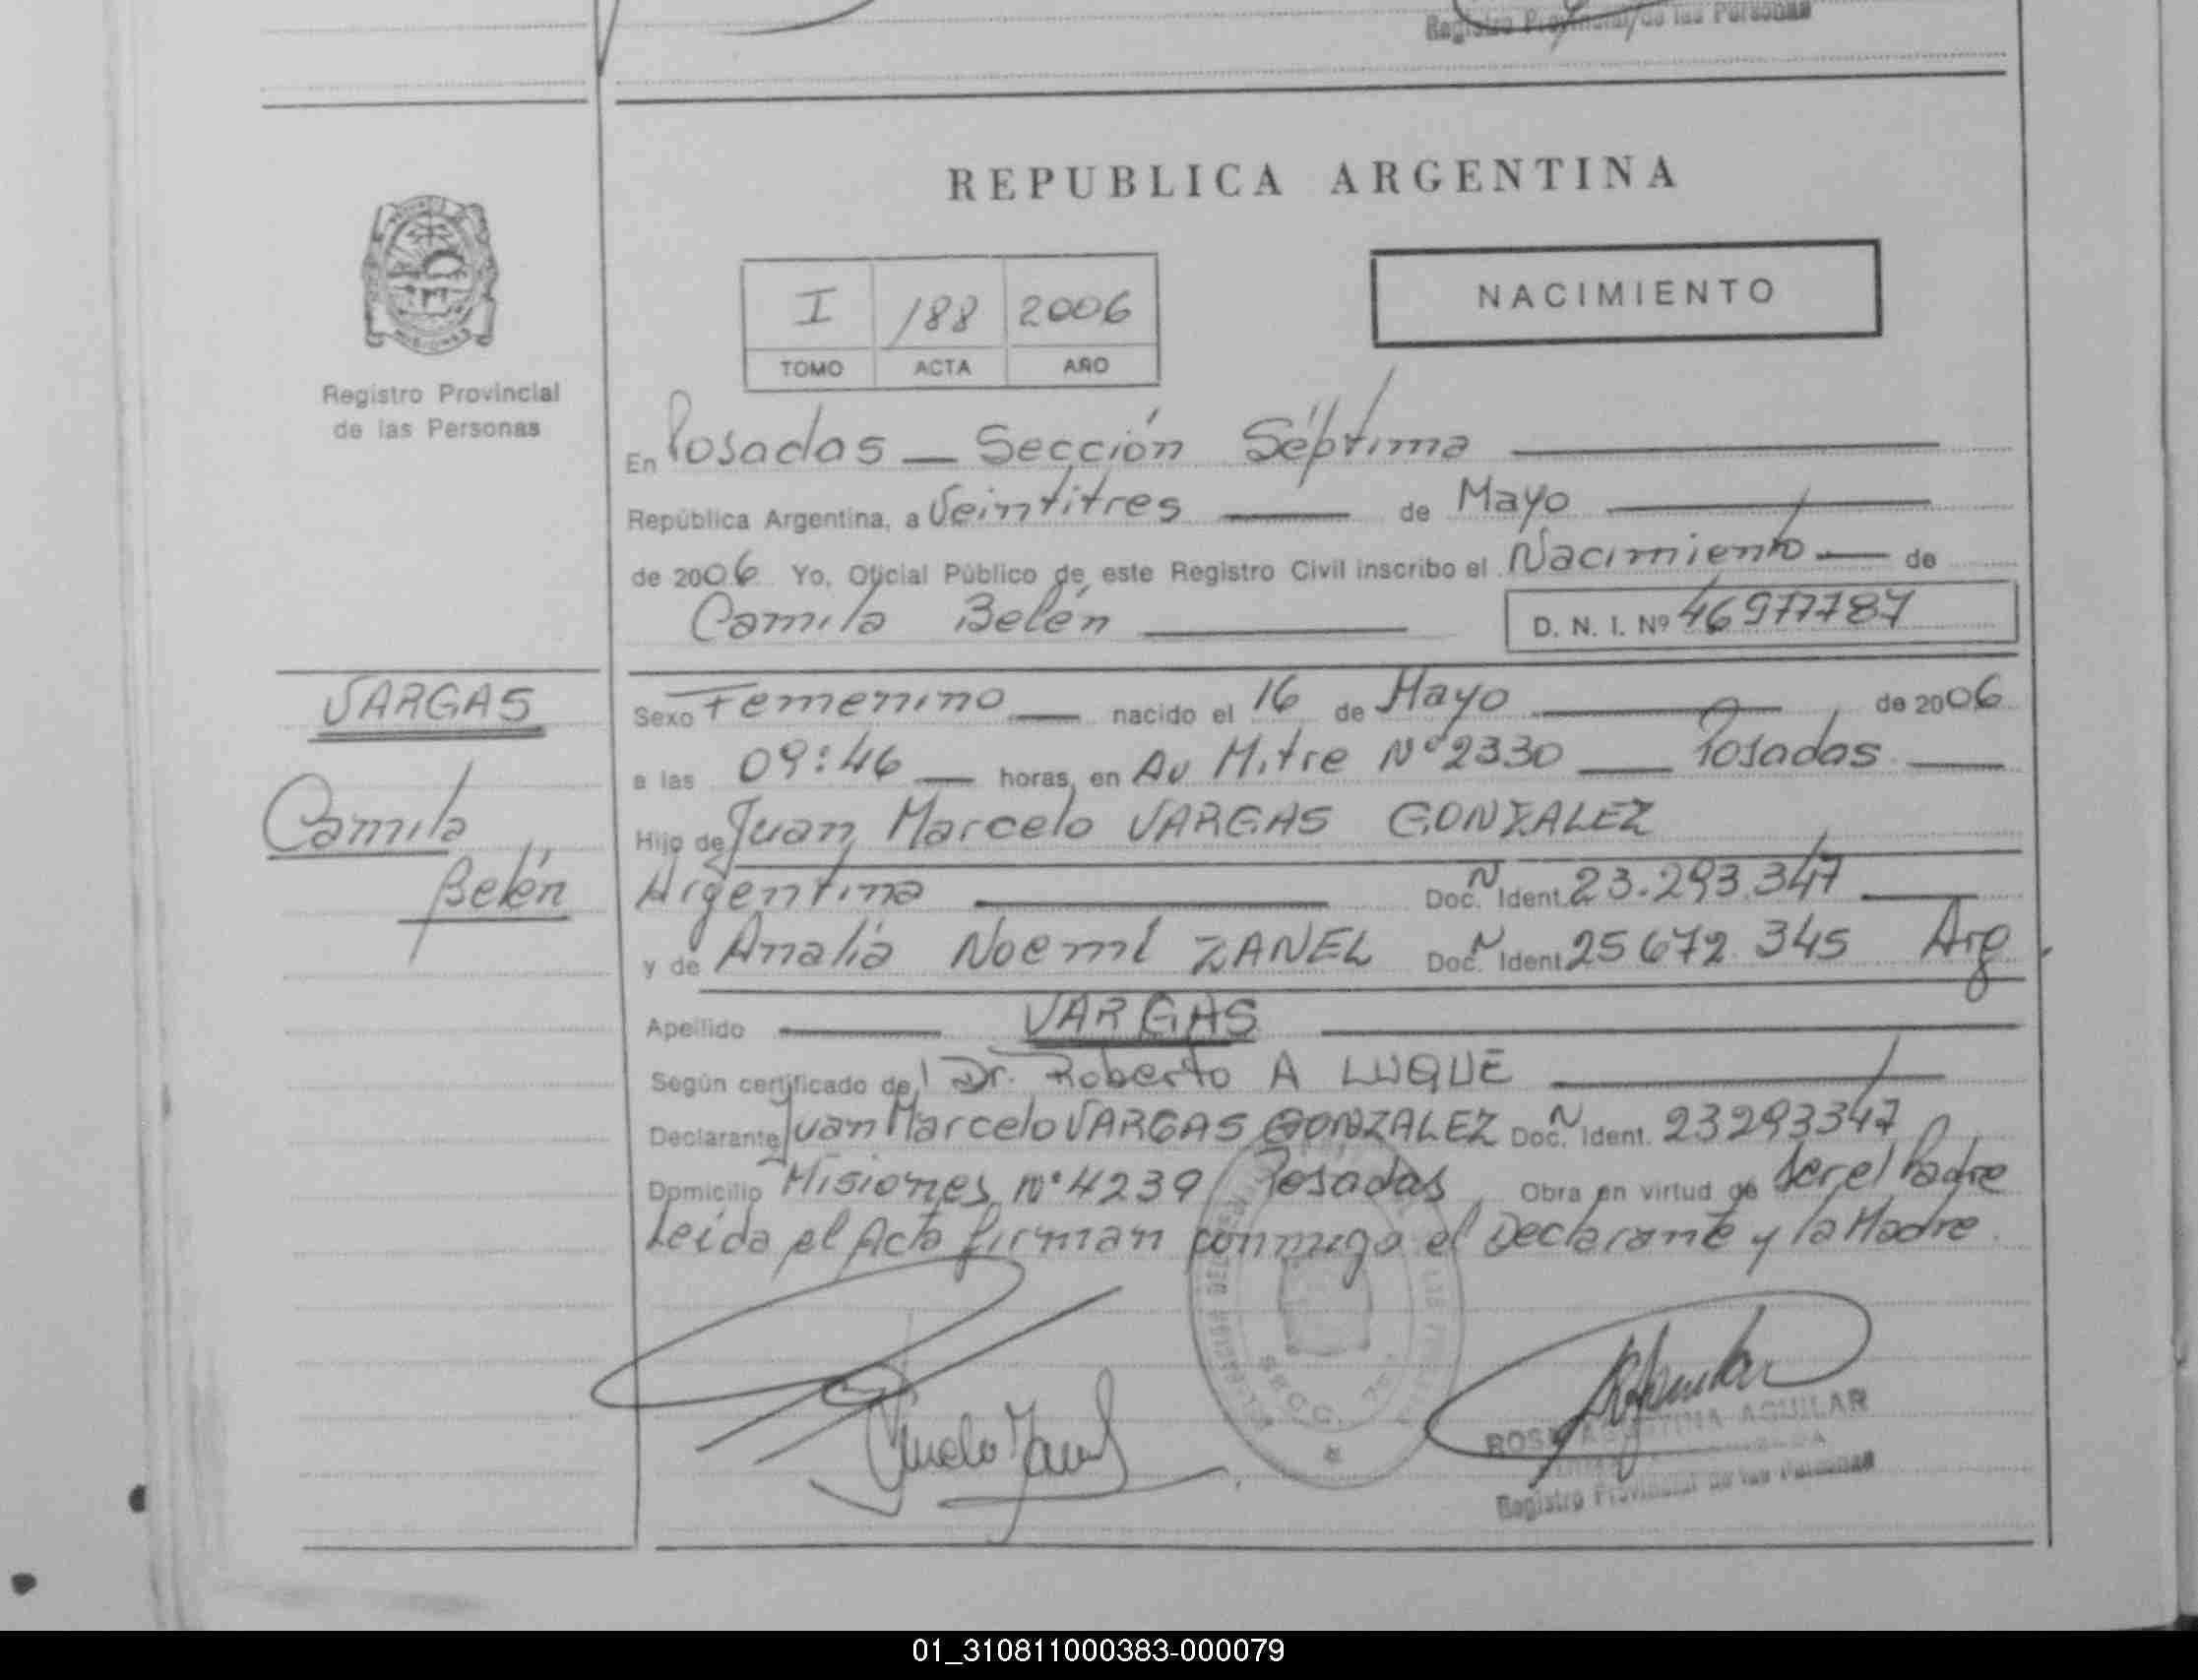 Registro Provincial de las Personas
REPUBLICA ARGENTINA
I 188 2006
TOMO ACTA AÑO
NACIMIENTO
Registro Provincial
de las Personas
En Posadas — Sección Séptima
República Argentina, a Veintitres — de Mayo
de 2006 Yo, Oficial Público de este Registro Civil inscribo el Nacimiento — de
Camila Belén
D. N. I. Nº 46977787
VARGAS
Camila
Belén
Sexo Femenino — nacido el 16 de Mayo — de 2006
a las 09:46 — horas, en Av Mitre Nº 2330 — Posadas —
Hijo de Juan Marcelo VARGAS GONZALEZ
Argentina — Doc. N Ident. 23.293.347 —
y de Analia Noemí ZANEL Doc. N Ident. 25672345 Arg.
Apellido — VARGAS —
Según certificado del Dr. Roberto A LUQUE —
Declarante Juan Marcelo VARGAS GONZALEZ Doc. N Ident. 23293347
Domicilio Misiones Nº 4239 Posadas Obra en virtud de ser el Padre
Leída el Acta firman conmigo el Declarante y la Madre.
SECC. 7
ROSA AGUSTINA AGUILAR
Registro Provincial de las Personas
01_310811000383-000079